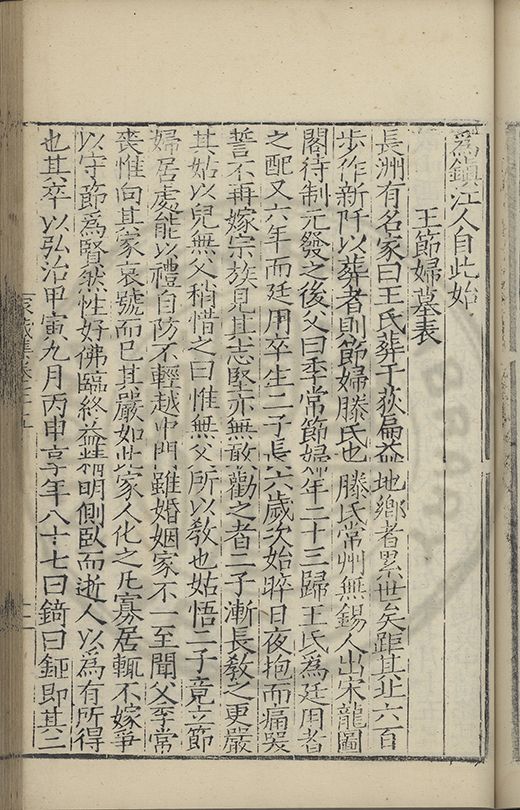 為鎮江人自此始
王節婦墓表
長洲有名家曰王氏葬于荻扁益地鄉者累世矣距其北六百
步作新阡以葬者則節婦滕氏也滕氏常州無錫人出宋龍圖
閣待制元發之後父曰季常節婦年二十三歸王氏為廷用者
之配又六年而廷用卒生二子長六歲次始晬日夜抱而痛哭
誓不再嫁宗族見其志堅亦無敢勸之者二子漸長教之更嚴
其姑以兒無父稍惜之曰惟無父所以教也姑悟二子竟立節
婦居處能以禮自防不輕越中門雖婚姻家不一至聞父季常
喪惟向其家哀號而已其嚴如此家人化之凡寡居輒不嫁爭
以守節為賢然性好佛臨終益精明側臥而逝人以為有所得
也其卒以弘治甲寅九月丙申享年八十七曰錡曰鉦即其二
家藏集卷七十五
十二